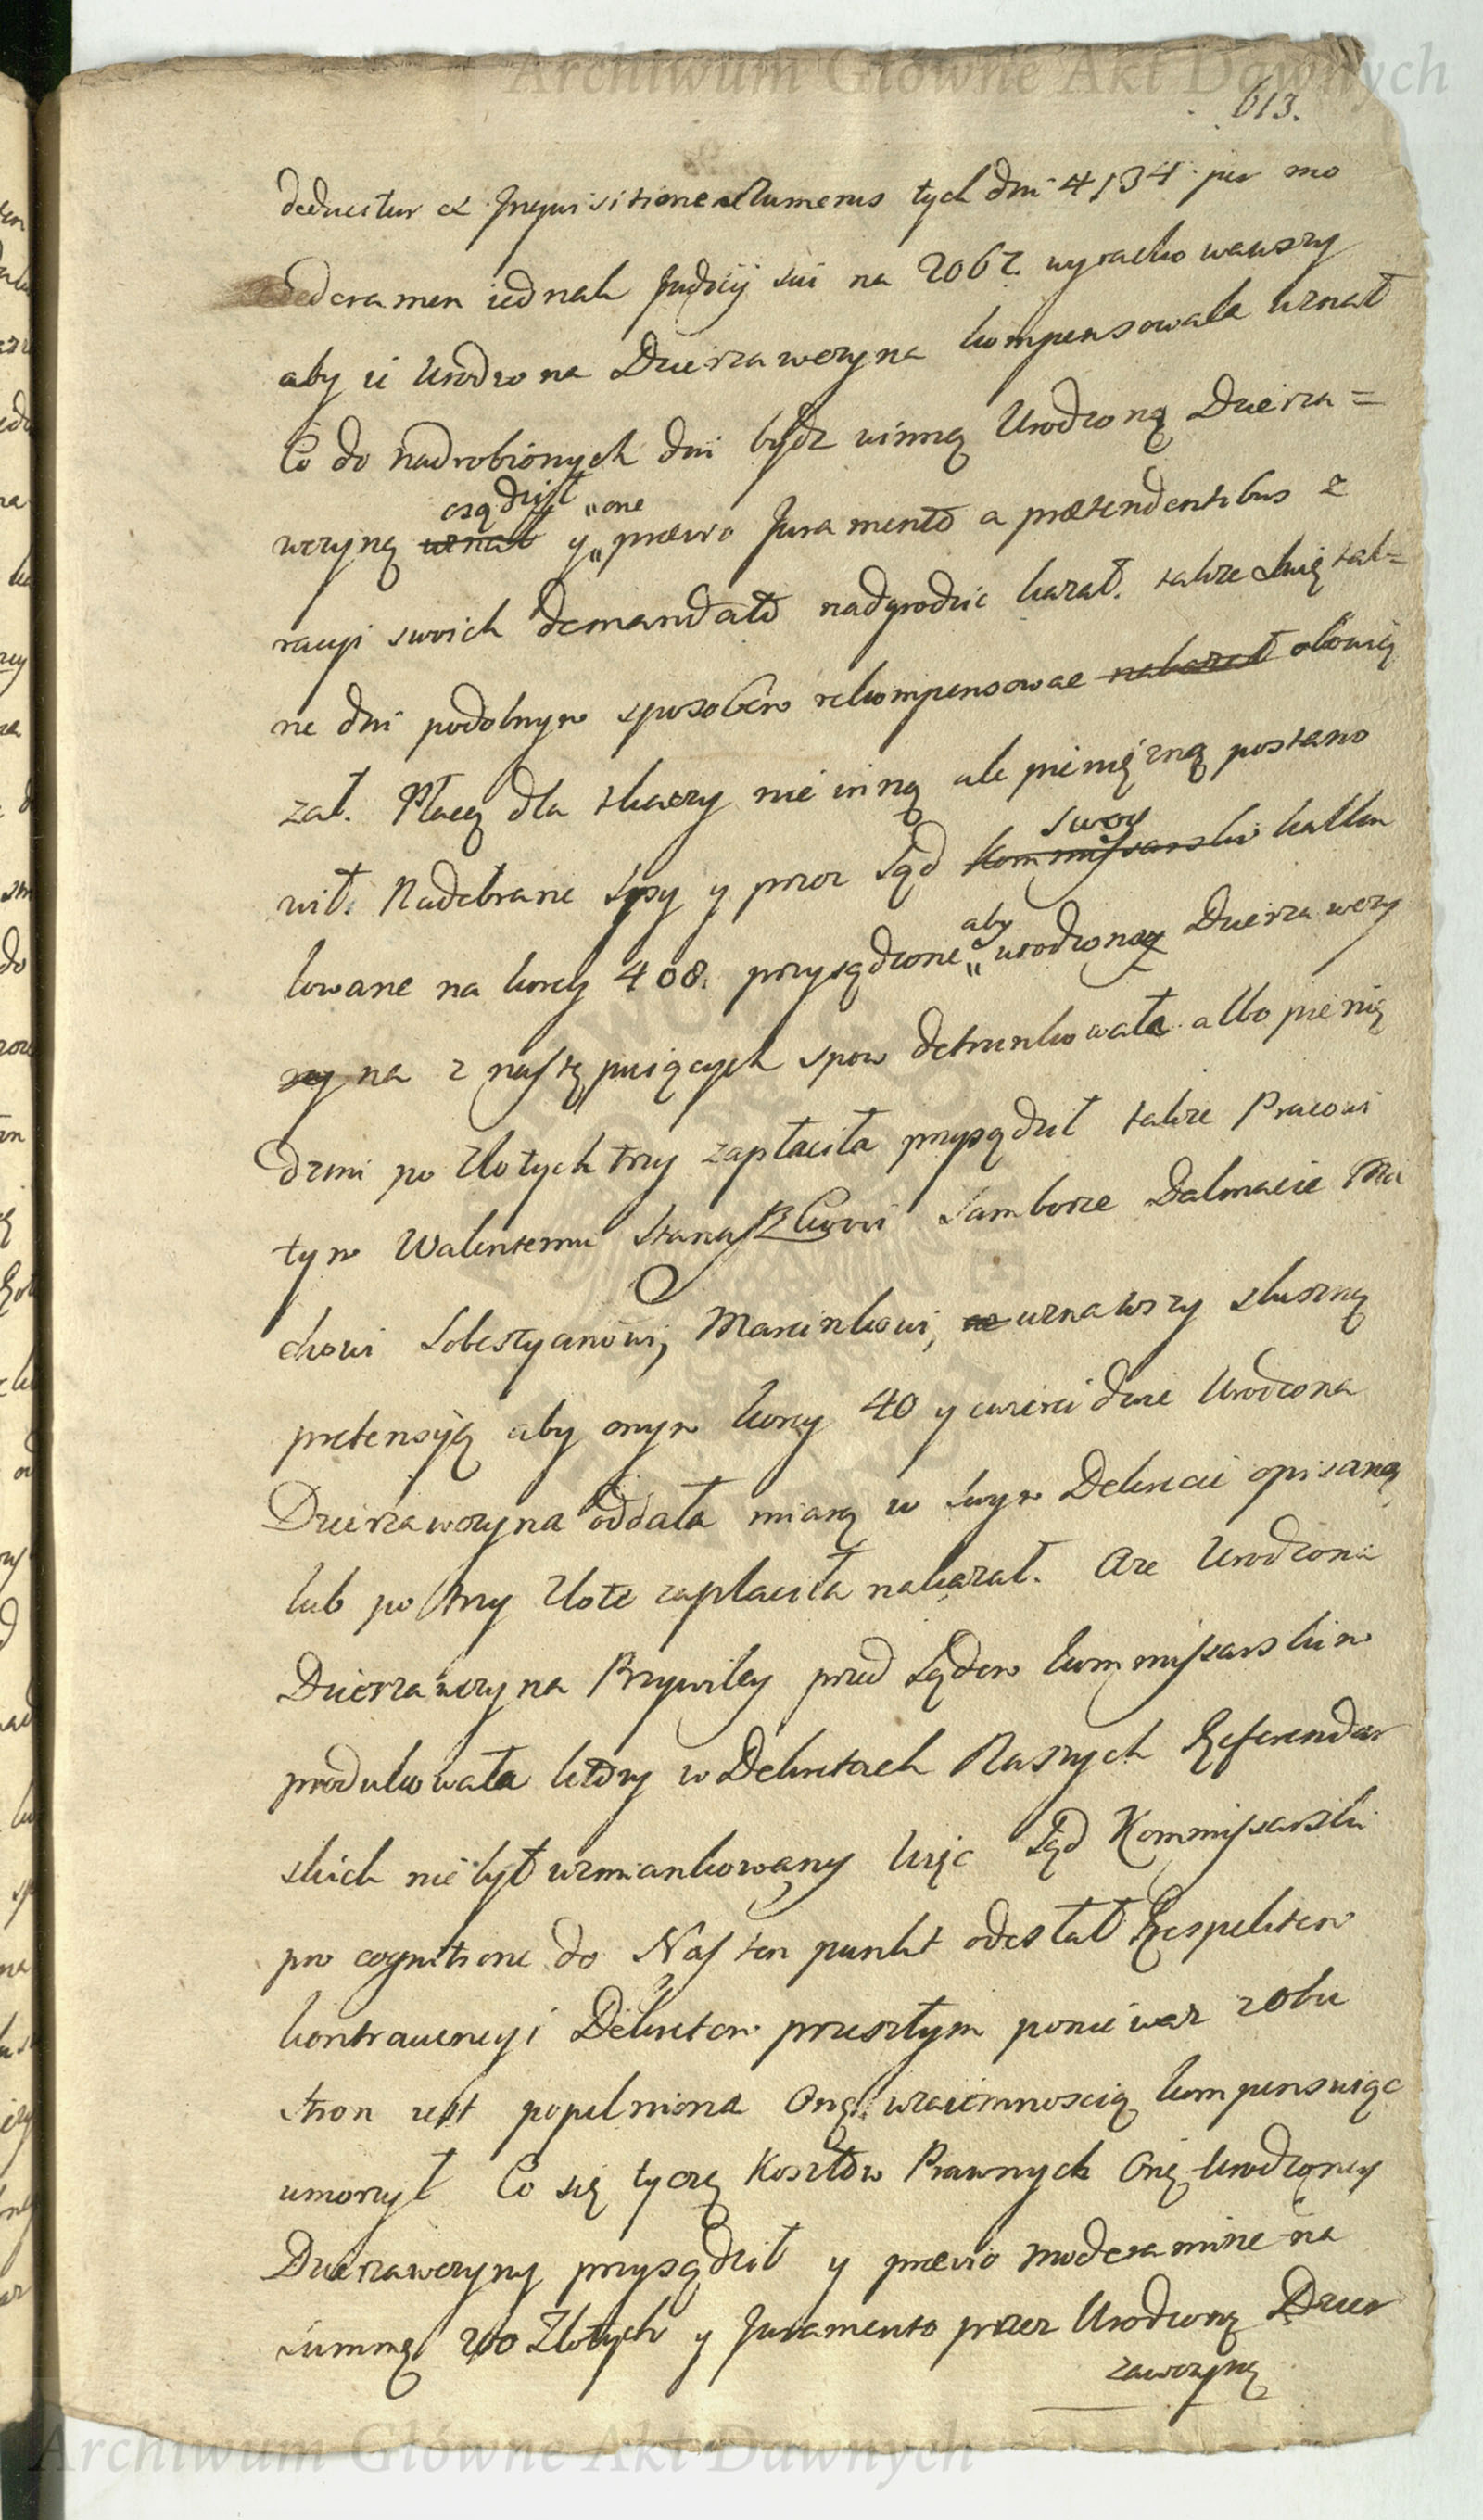 Archiwum Główne Akt Dawnych
613.
deducitur ex Inquisitione Numerus tych dni 4134. per mo
deramen iednak Judicij sui na 2067. wyrachowawszy
aby ie Urodzona Dzierzawczyna kompensowała uznał
Co do nadrobionych dni bydz winną Urodzoną Dzierza=
wczynę uznał osądził y „one prævio Juramento a prætendentibus z
racyi swoich demandato nadgrodzic kazał. takze Swiętal=
ne dni podobnym sposobem rekompensowac nakazał obowią
zał. Płacę dla tkaczy nie inną ale pienięzną postano
wił. Nadebrane Sepy y przez Sąd Kommissarski swoy kalku
lowane na korcy 408. przysądzone „aby urodzona Dzierzawczy
ny na z następuiących spow detrunkowała albo pienię
dzmi po Złotych trzy zapłaciła przysądził takze Pracowi
tym Walentemu Stanaszkowi Samborze Dalmacie Ma
chowi Sobestyanowi, Marcinkowi, uznawszy słuszną
pretensyą aby onym korcy 40 y cwierci dwie Urodzona
Dzierzawczyna oddała miarą w Swym Dekrecie opisaną
lub po trzy Złote zapłaciła nakazał. Aze Urodzona
Dzierzawczyna Przywiley przed Sądem kommissarskim
produkowała który w Dekretach Naszych Referendar
skich nie był wzmiankowany więc Sąd Kommissarski
pro cognitione do Nas ten punkt odesłał Respektem
kontrawencyi Dekretow przeszłym poniewaz z obu
stron iest popełniona Onę wzaiemnoscią kompensuiąc
umorzył Co się tyczę Kosztow Prawnych Onę Urodzoney
Dzierzawczyny przysądził y prævio moderamine na
Summę 200 Złotych y Juramento przez Urodzoną Dzier
zawczynę
Archiwum Główne Akt Dawnych